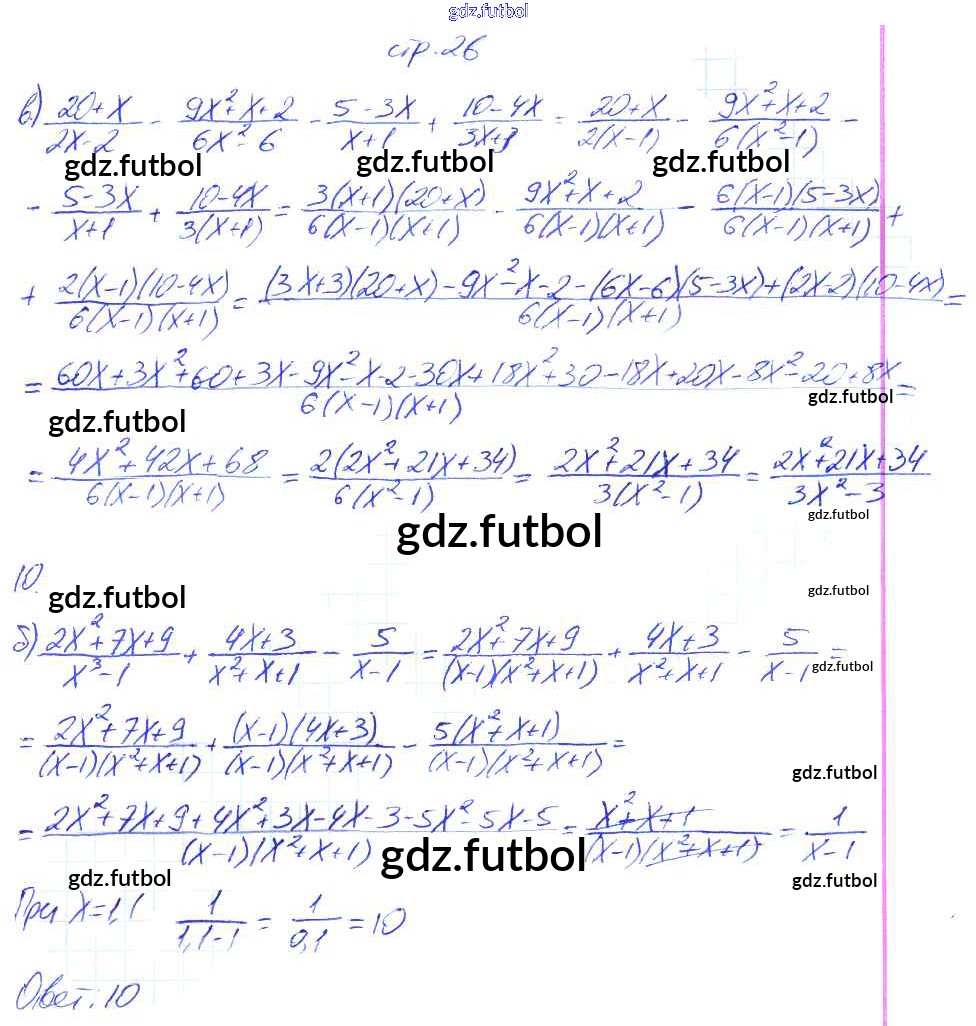 gdz.futbol
стр. 26
в) (20+x)/(2x-2) - (9x²+x+2)/(6x²-6) - (5-3x)/(x+1) + (10-4x)/(3x+3) = (20+x)/(2(x-1)) - (9x²+x+2)/(6(x²-1)) -
gdz.futbol gdz.futbol gdz.futbol
- (5-3x)/(x+1) + (10-4x)/(3(x+1)) = (3(x+1)(20+x))/(6(x-1)(x+1)) - (9x²+x+2)/(6(x-1)(x+1)) - (6(x-1)(5-3x))/(6(x-1)(x+1)) +
+ (2(x-1)(10-4x))/(6(x-1)(x+1)) = ((3x+3)(20+x)-9x²-x-2-(6x-6)(5-3x)+(2x-2)(10-4x))/(6(x-1)(x+1)) =
= (60x+3x²+60+3x-9x²-x-2-30x+18x²+30-18x+20x-8x²-20+8x)/(6(x-1)(x+1)) =
gdz.futbol gdz.futbol
= (4x²+42x+68)/(6(x-1)(x+1)) = (2(2x²+21x+34))/(6(x²-1)) = (2x²+21x+34)/(3(x²-1)) = (2x²+21x+34)/(3x²-3)
gdz.futbol gdz.futbol
10.
gdz.futbol gdz.futbol
б) (2x²+7x+9)/(x³-1) + (4x+3)/(x²+x+1) - 5/(x-1) = (2x²+7x+9)/((x-1)(x²+x+1)) + (4x+3)/(x²+x+1) - 5/(x-1) =
gdz.futbol
= (2x²+7x+9)/((x-1)(x²+x+1)) + ((x-1)(4x+3))/((x-1)(x²+x+1)) - (5(x²+x+1))/((x-1)(x²+x+1)) =
gdz.futbol
= (2x²+7x+9+4x²+3x-4x-3-5x²-5x-5)/((x-1)(x²+x+1)) = (x²+x+1)/((x-1)(x²+x+1)) = 1/(x-1)
gdz.futbol gdz.futbol gdz.futbol
При x=1,1 1/(1,1-1) = 1/0,1 = 10
Ответ: 10